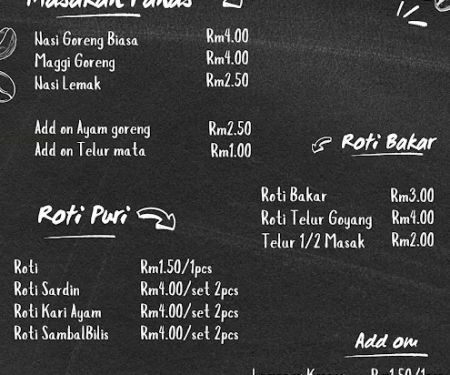 Masakan Panas
Nasi Goreng Biasa Rm4.00
Maggi Goreng Rm4.00
Nasi Lemak Rm2.50
Add on Ayam goreng Rm2.50
Add on Telur mata Rm1.00
Roti Bakar
Roti Bakar Rm3.00
Roti Telur Goyang Rm4.00
Telur 1/2 Masak Rm2.00
Roti Puri
Roti Rm1.50/1pcs
Roti Sardin Rm4.00/set 2pcs
Roti Kari Ayam Rm4.00/set 2pcs
Roti SambalBilis Rm4.00/set 2pcs
Add om